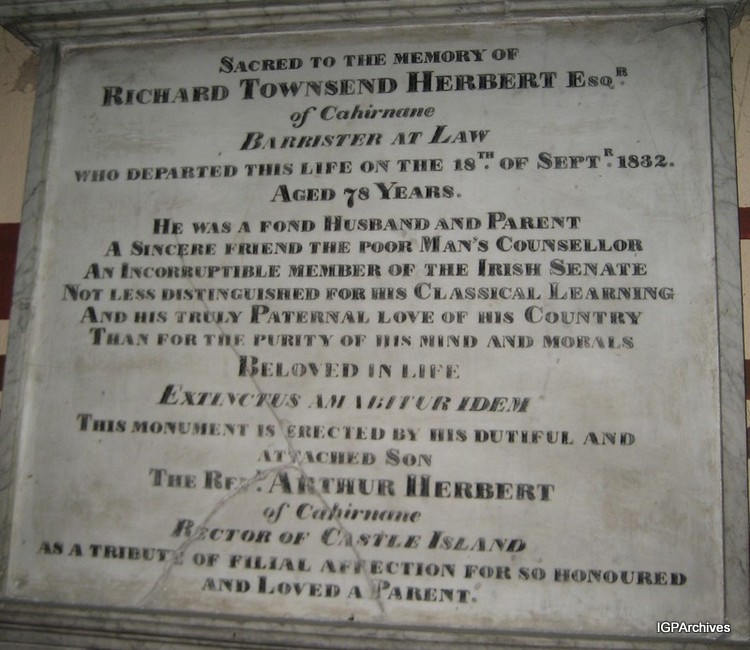 Sacred to the memory of
Richard Townsend Herbert Esqr.
of Cahirnane
Barrister at Law
who departed this life on the 18th. of Septr. 1832.
Aged 78 Years.
He was a fond Husband and Parent
A Sincere friend the poor Man's Counsellor
An Incorruptible member of the Irish Senate
Not less distinguished for his Classical Learning
And his truly Paternal love of his Country
Than for the purity of his mind and morals
Beloved in life
Extinctus amabitur idem
This monument is erected by his dutiful and
attached Son
The Revd. Arthur Herbert
of Cahirnane
Rector of Castle Island
as a tribute of filial affection for so honoured
and Loved a Parent.
IGPArchives